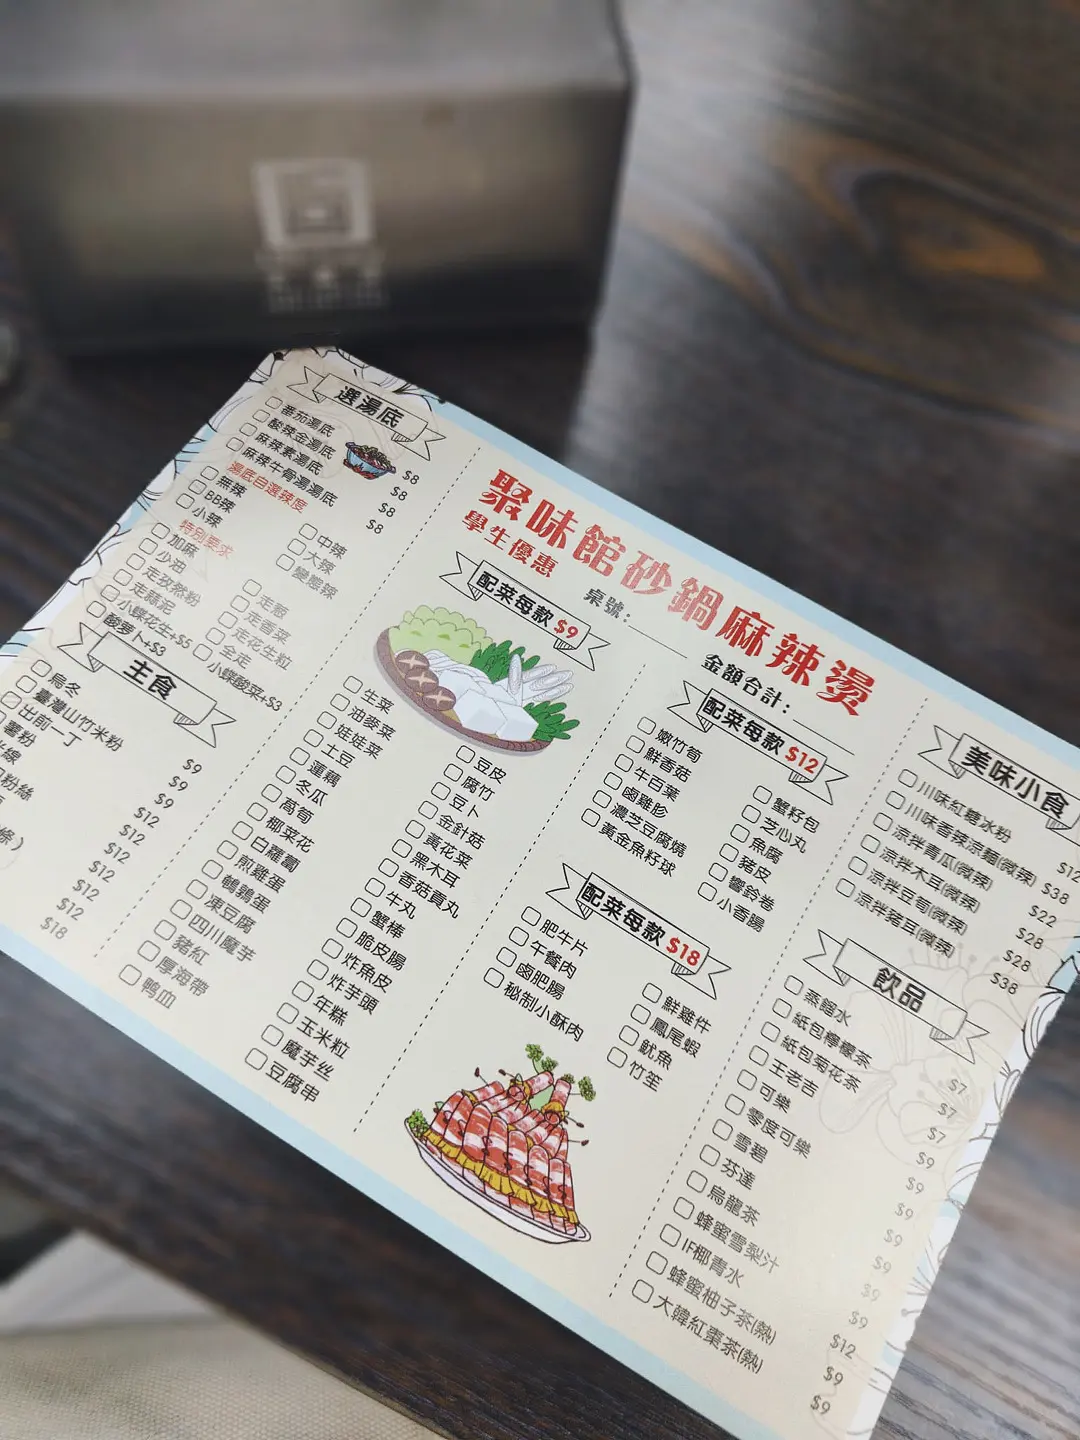 聚味館砂鍋麻辣燙
學生優惠
桌號：
金額合計：
選湯底
番茄湯底 $8
酸辣金湯底 $8
麻辣素湯底 $8
麻辣牛骨湯湯底 $8
湯底自選辣度
無辣
BB辣
小辣
中辣
大辣
變態辣
特別要求
加麻
少油
走孜然粉
走蒜泥
小蝶花生+$5
酸萝卜+$3
走葱
走香菜
走花生粒
全走
小蝶酸菜+$3
主食
烏冬 $9
臺灣山竹米粉 $9
出前一丁 $9
薯粉 $12
線 $12
粉絲 $12
$12
條） $12
$18
配菜每款 $9
生菜
油麥菜
娃娃菜
土豆
蓮藕
冬瓜
萵筍
椰菜花
白蘿蔔
煎雞蛋
鵪鶉蛋
凍豆腐
四川魔芋
豬紅
厚海帶
鸭血
豆皮
腐竹
豆卜
金針菇
黃花菜
黑木耳
香菇貢丸
牛丸
蟹棒
脆皮腸
炸魚皮
炸芋頭
年糕
玉米粒
魔芋丝
豆腐串
配菜每款 $12
嫩竹筍
鮮香菇
牛百葉
鹵雞胗
濃芝豆腐燒
黃金魚籽球
蟹籽包
芝心丸
魚腐
豬皮
響鈴卷
小香腸
配菜每款 $18
肥牛片
午餐肉
鹵肥腸
秘制小酥肉
鮮雞件
鳳尾蝦
魷魚
竹笙
美味小食
川味紅糖冰粉 $12
川味香辣涼麵(微辣) $38
涼拌青瓜(微辣) $22
涼拌木耳(微辣) $28
涼拌豆筍(微辣) $28
涼拌豬耳(微辣) $38
飲品
蒸餾水 $7
紙包檸檬茶 $7
紙包菊花茶 $7
王老吉 $9
可樂 $9
零度可樂 $9
雪碧 $9
芬達 $9
烏龍茶 $9
蜂蜜雪梨汁 $9
IF椰青水 $12
蜂蜜柚子茶(熱) $9
大韓紅棗茶(熱) $9